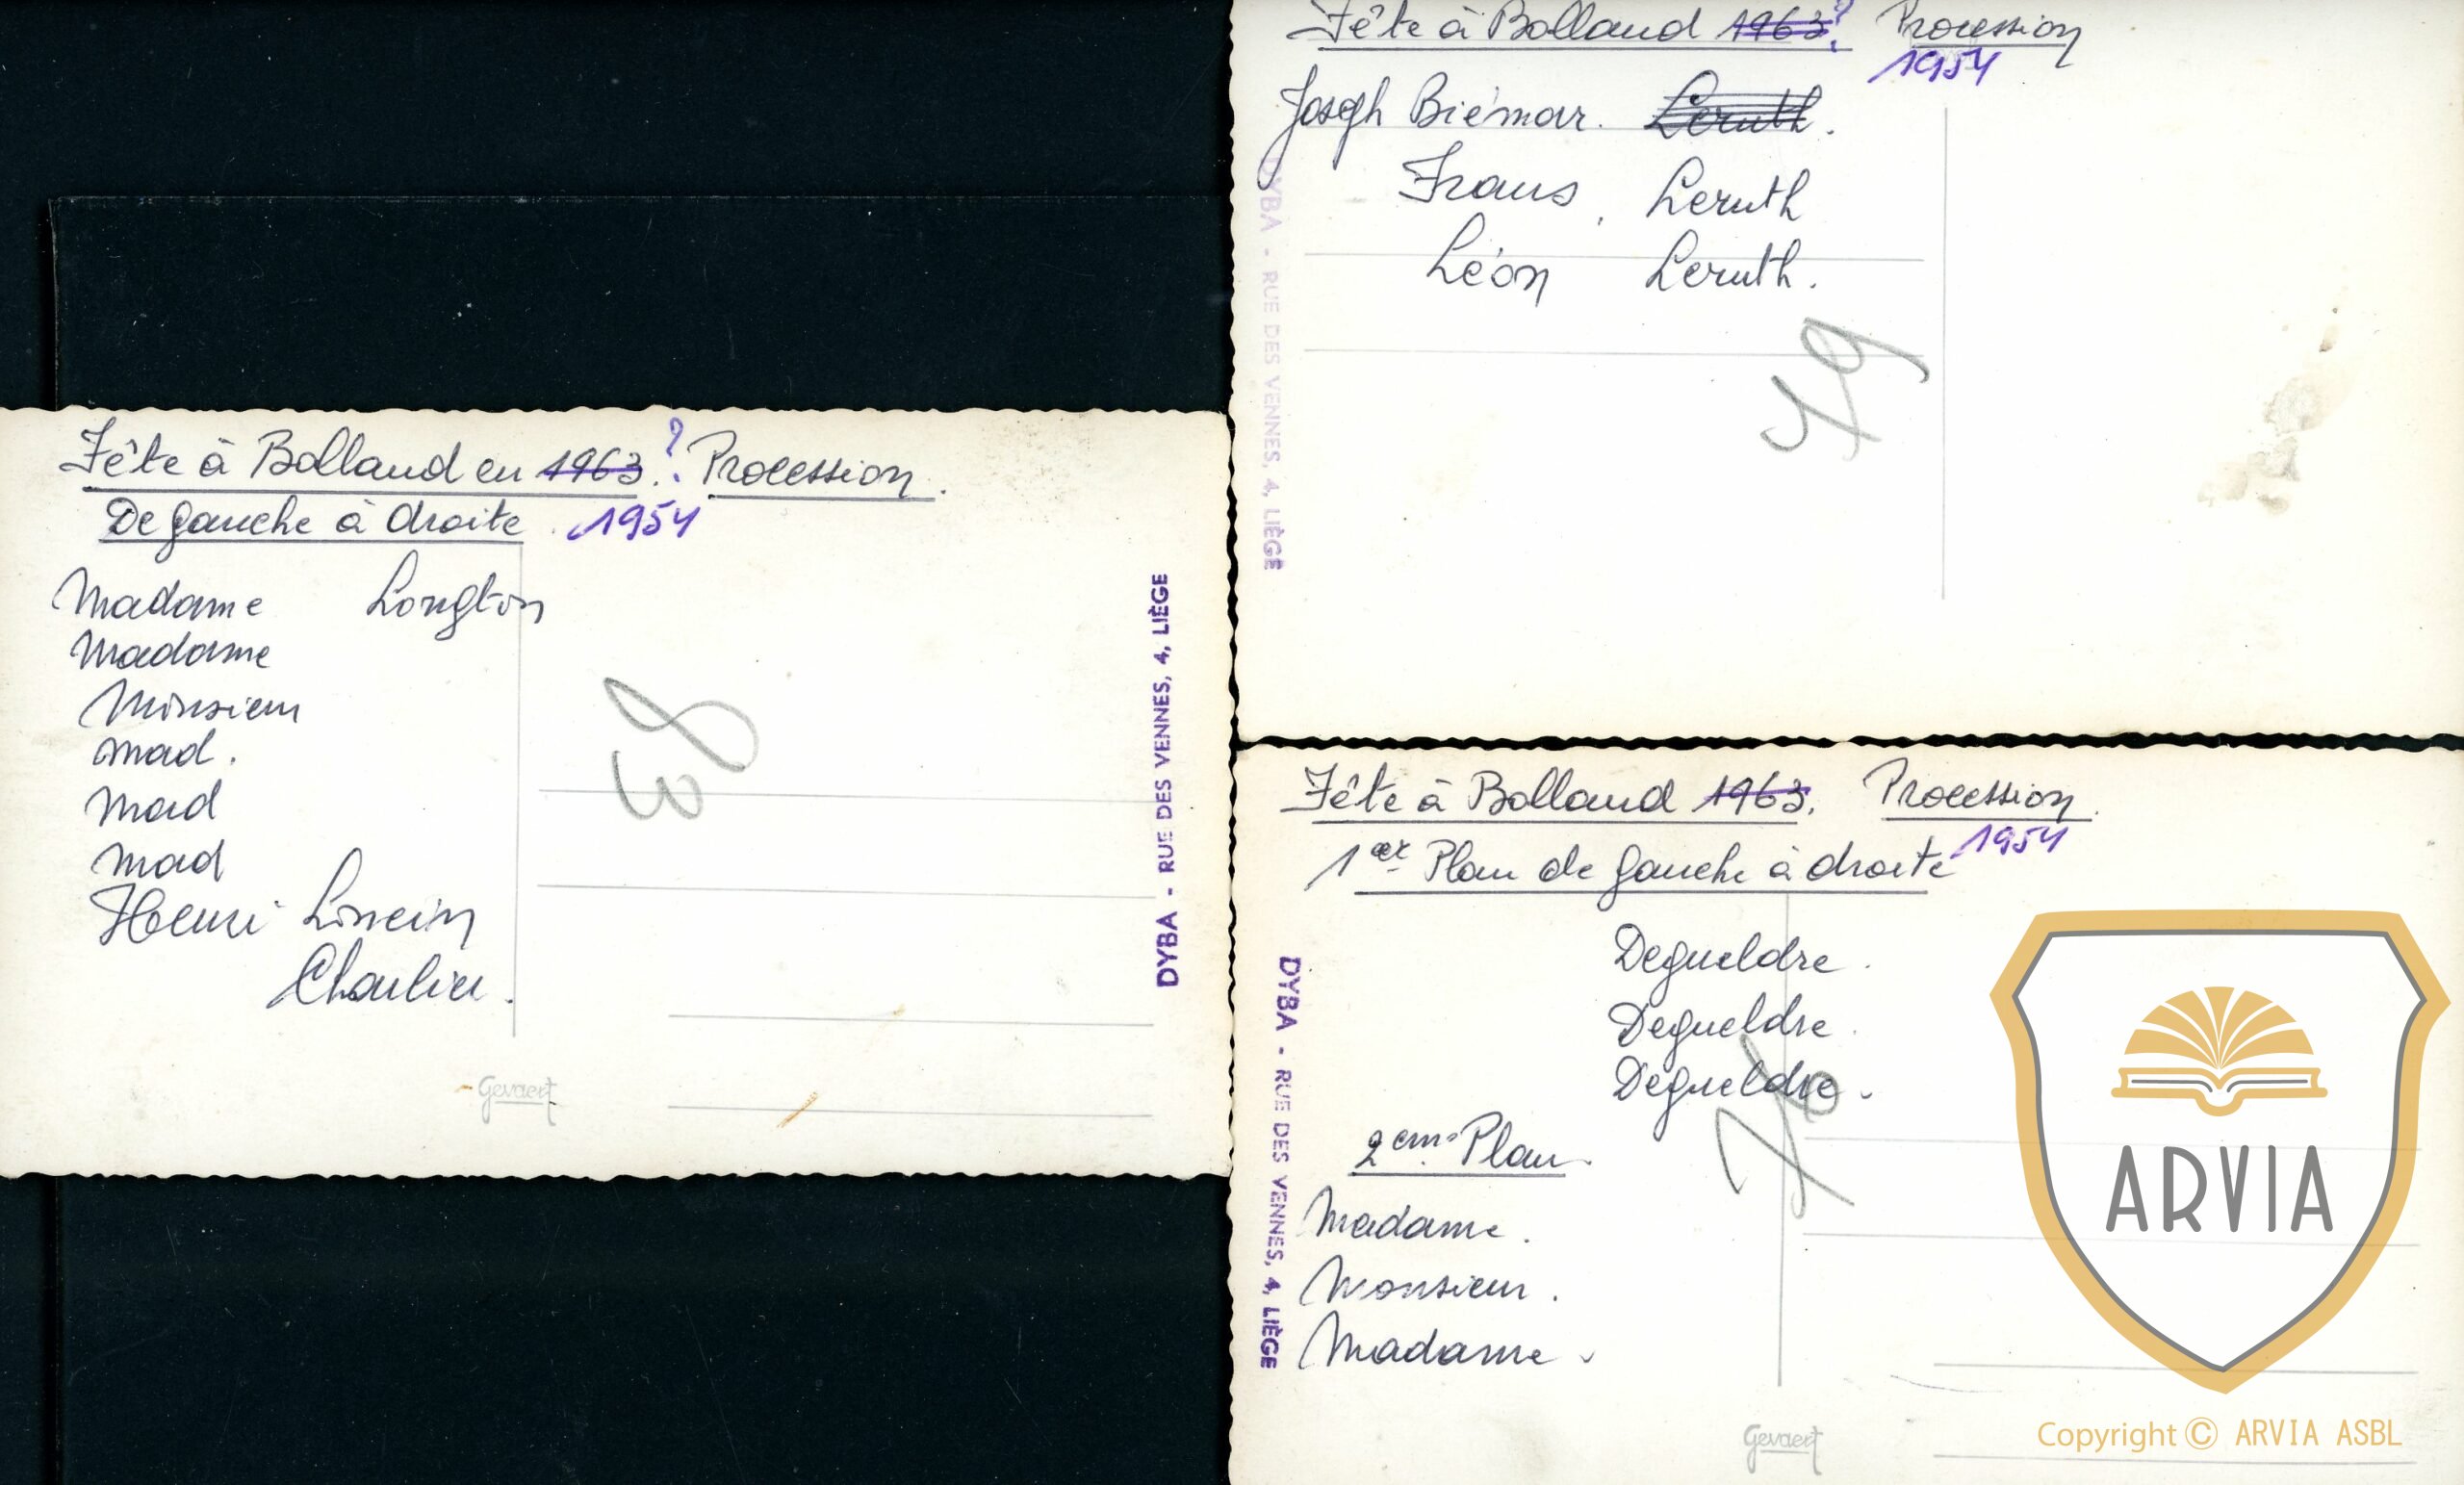 Fête à Bolland en 1963.? Procession.
De gauche à droite. 1954
Madame Longton
Madame
Monsieur
Mad.
Mad
Mad
Henri
Charlier.
DYBA - RUE DES VENNES, 4, LIÈGE
38
Gevaert
Fête à Bolland 1963? Procession
1954
Joseph Biémar. Leruth.
Frans, Leruth
Léon Leruth.
DYBA - RUE DES VENNES, 4, LIÈGE
Fête à Bolland 1963. Procession.
1954
1er Plan de gauche à droite
Degueldre.
Degueldre.
Degueldre.
2em Plan.
Madame.
Monsieur.
Madame.
DYBA - RUE DES VENNES, 4, LIÈGE
Gevaert
ARVIA
Copyright © ARVIA ASBL